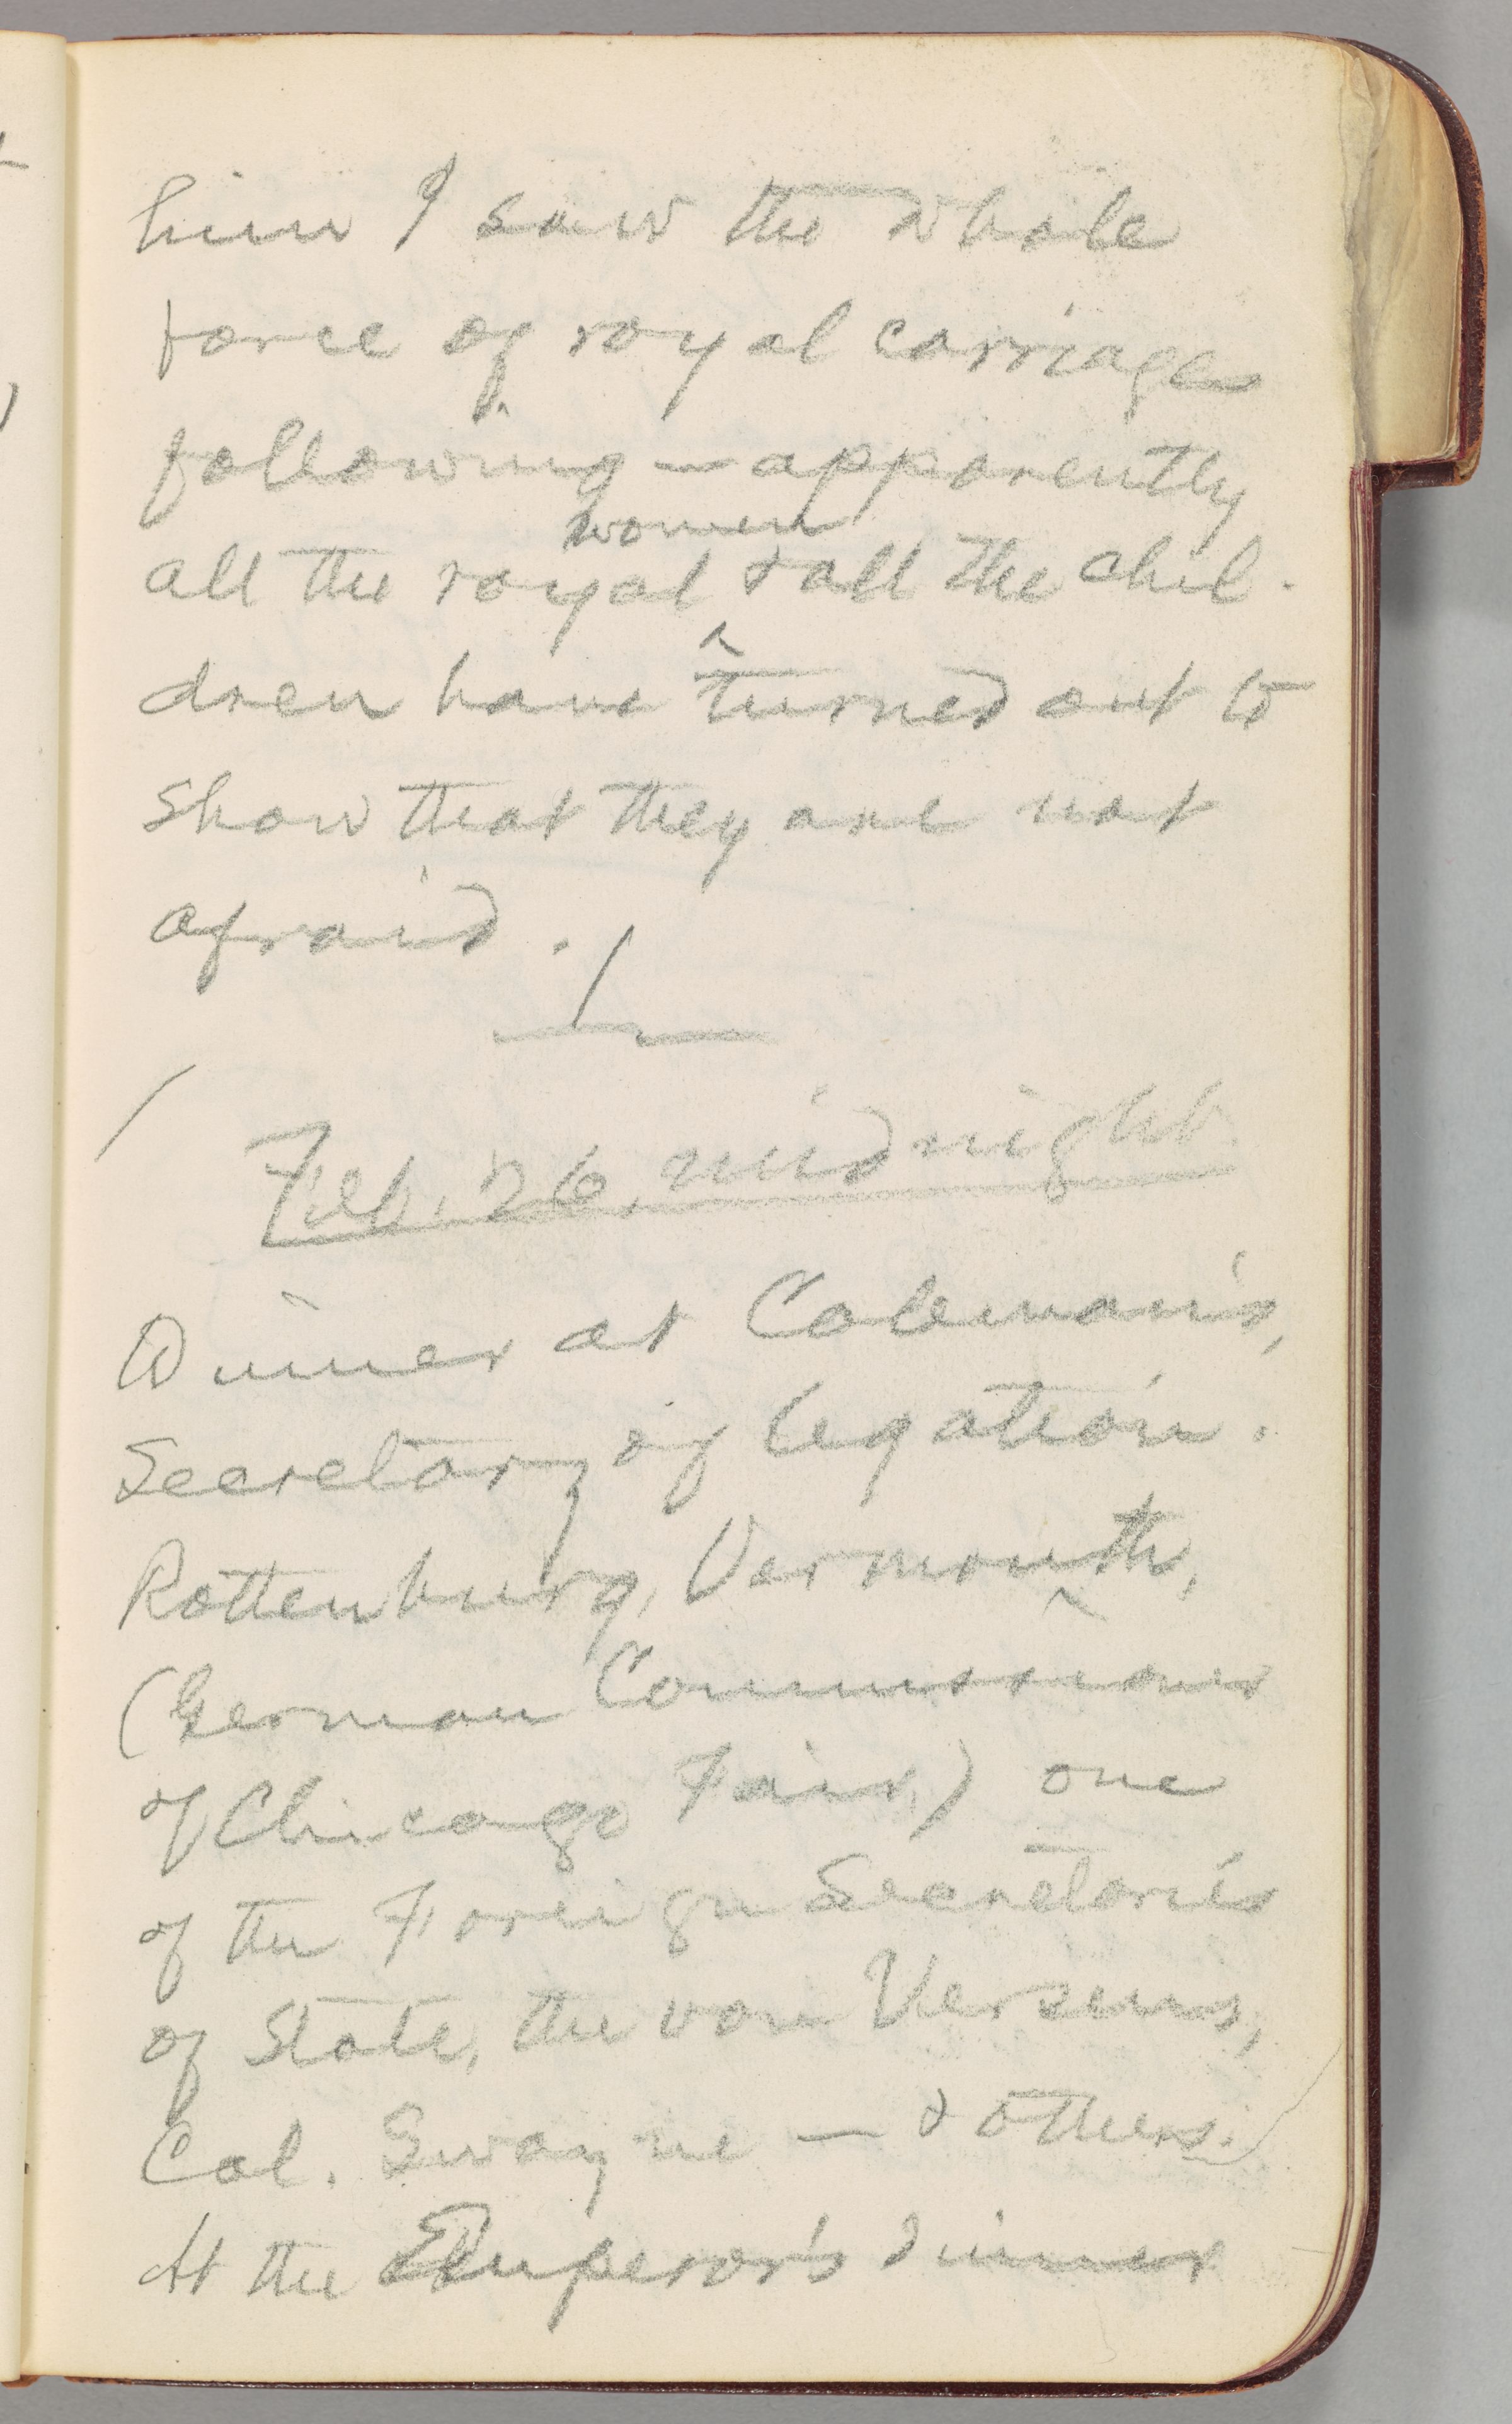 him I saw the whole
force of royal carriages
following — apparently
women
all the royal & all the chil-
dren have turned out to
show that they are not
afraid.
Feb. 26, midnight.
Dinner at Coleman's,
Secretary of legation.
Rottenburg, Vermouth,
(German Commissioner
of Chicago Fair,) one
of the Foreign Secretaries
of State, the von Versens,
Col. Swayne — & others.
At the Emperor's dinner